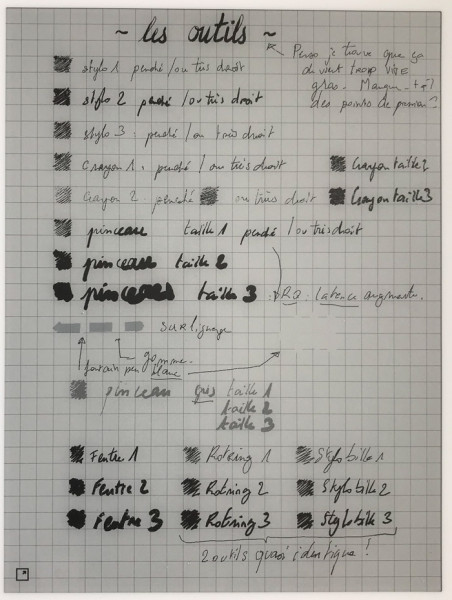 ~ les outils ~
Perso je trouve que ça
devient trop vite
gras. Manque-t-il
des points de pression ?
stylo 1 penché / ou très droit
stylo 2 penché / ou très droit
stylo 3 : penché / ou très droit
Crayon 1 : penché / ou très droit
Crayon taille 2
Crayon 2 : penché ou très droit
Crayon taille 3
pinceau taille 1 penché / ou très droit
pinceau taille 2
pinceau taille 3 : RQ : latence augmente.
surlignage
gomme
blanc
pinceau gris taille 1
taille 2
taille 3
Feutre 1 Rotring 1 Stylo bille 1
Feutre 2 Rotring 2 Stylo bille 2
Feutre 3 Rotring 3 Stylo bille 3
2 outils quasi identique !